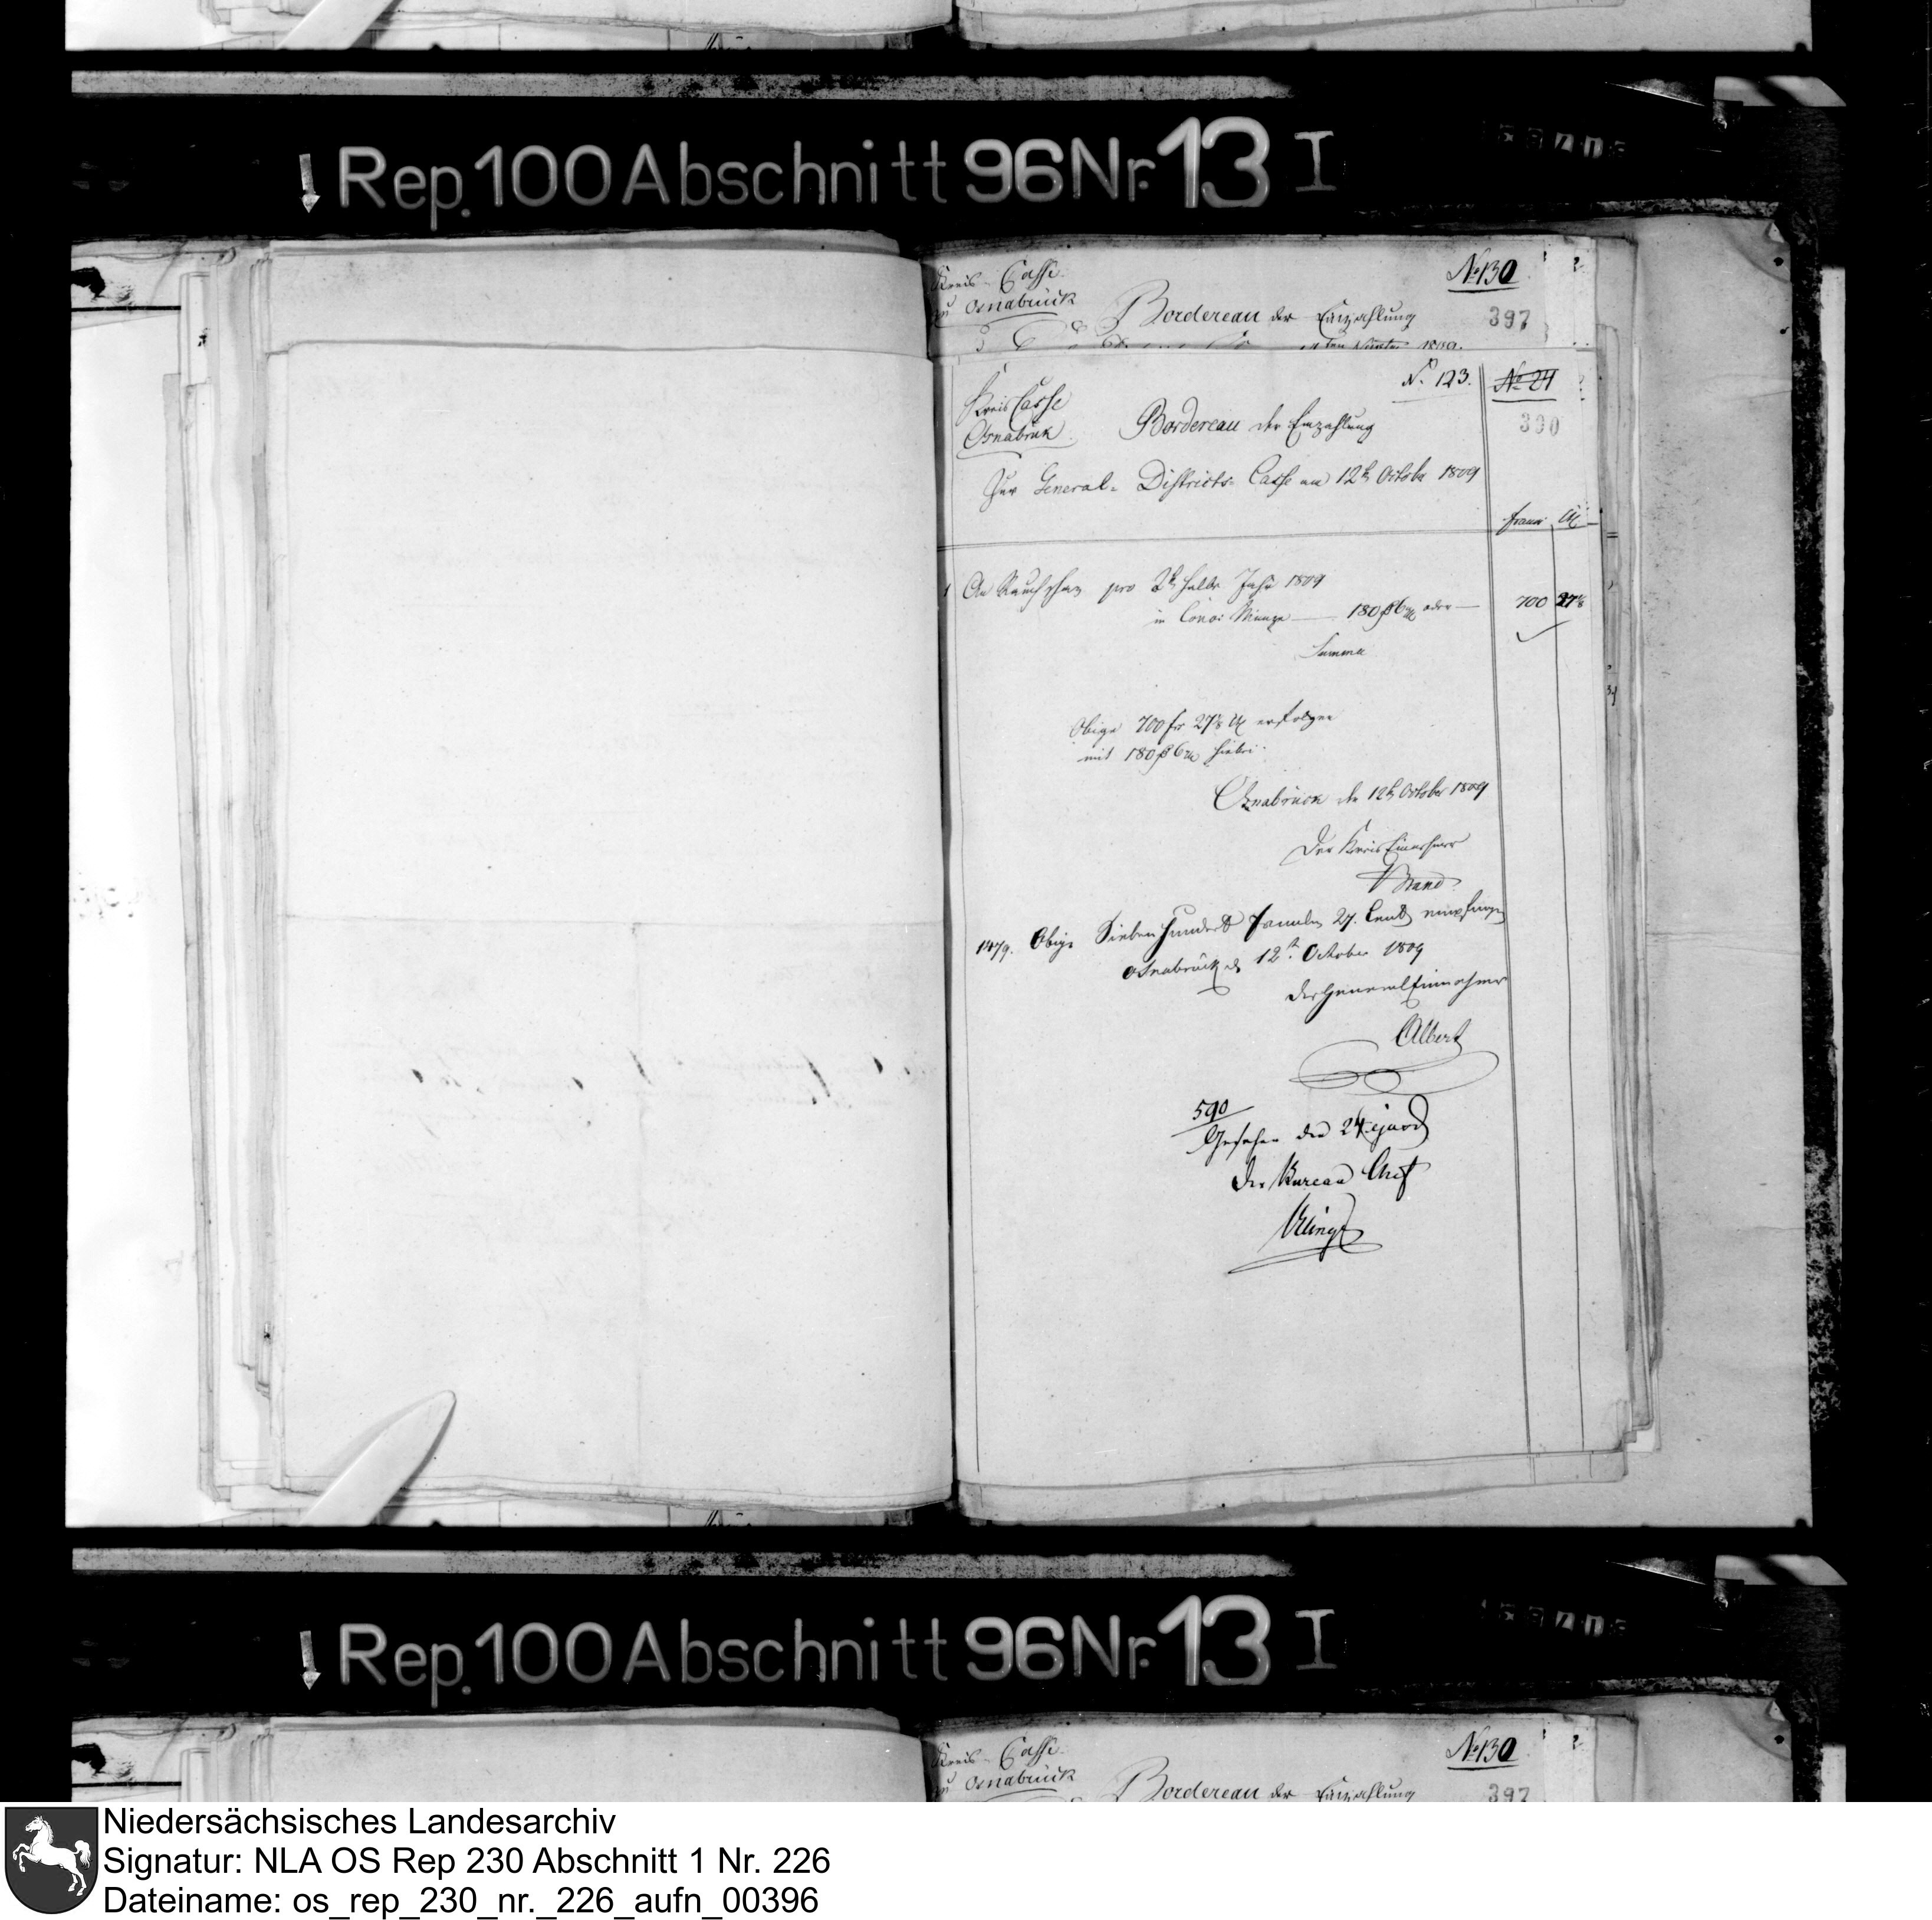 Rep. 100 Abschnitt 96 Nr. 13 I
Kreis-Casse
zu Osnabrück
No 130
Bordereau der Einzahlung
397
N. 123.
No 24
Kreis Casse
Osnabrük
Bordereau der Einzahlung
390
Zur General-Districts-Casse am 12t October 1809
1 An Rauchschaz pro 2t halbe Jahr 1809
in Conv: Münze 180 6 oder 700 27
Summa
Obige 700 fr 27 erfolgen
mit 180 6 hiebei.
Osnabrück den 12t October 1809
Der Kreis Einnehmer
Brand
1479. Obige Siebenhundert Franken 27. Cent empfangen
Osnabrück d 12t October 1809
Der General Einnehmer
Albert
590
Gesehen den 24
Der Bureau Chef
Rep. 100 Abschnitt 96 Nr. 13 I
Kreis-Casse
zu Osnabrück
No 130
Bordereau der Einzahlung
397
Niedersächsisches Landesarchiv
Signatur: NLA OS Rep 230 Abschnitt 1 Nr. 226
Dateiname: os_rep_230_nr._226_aufn_00396